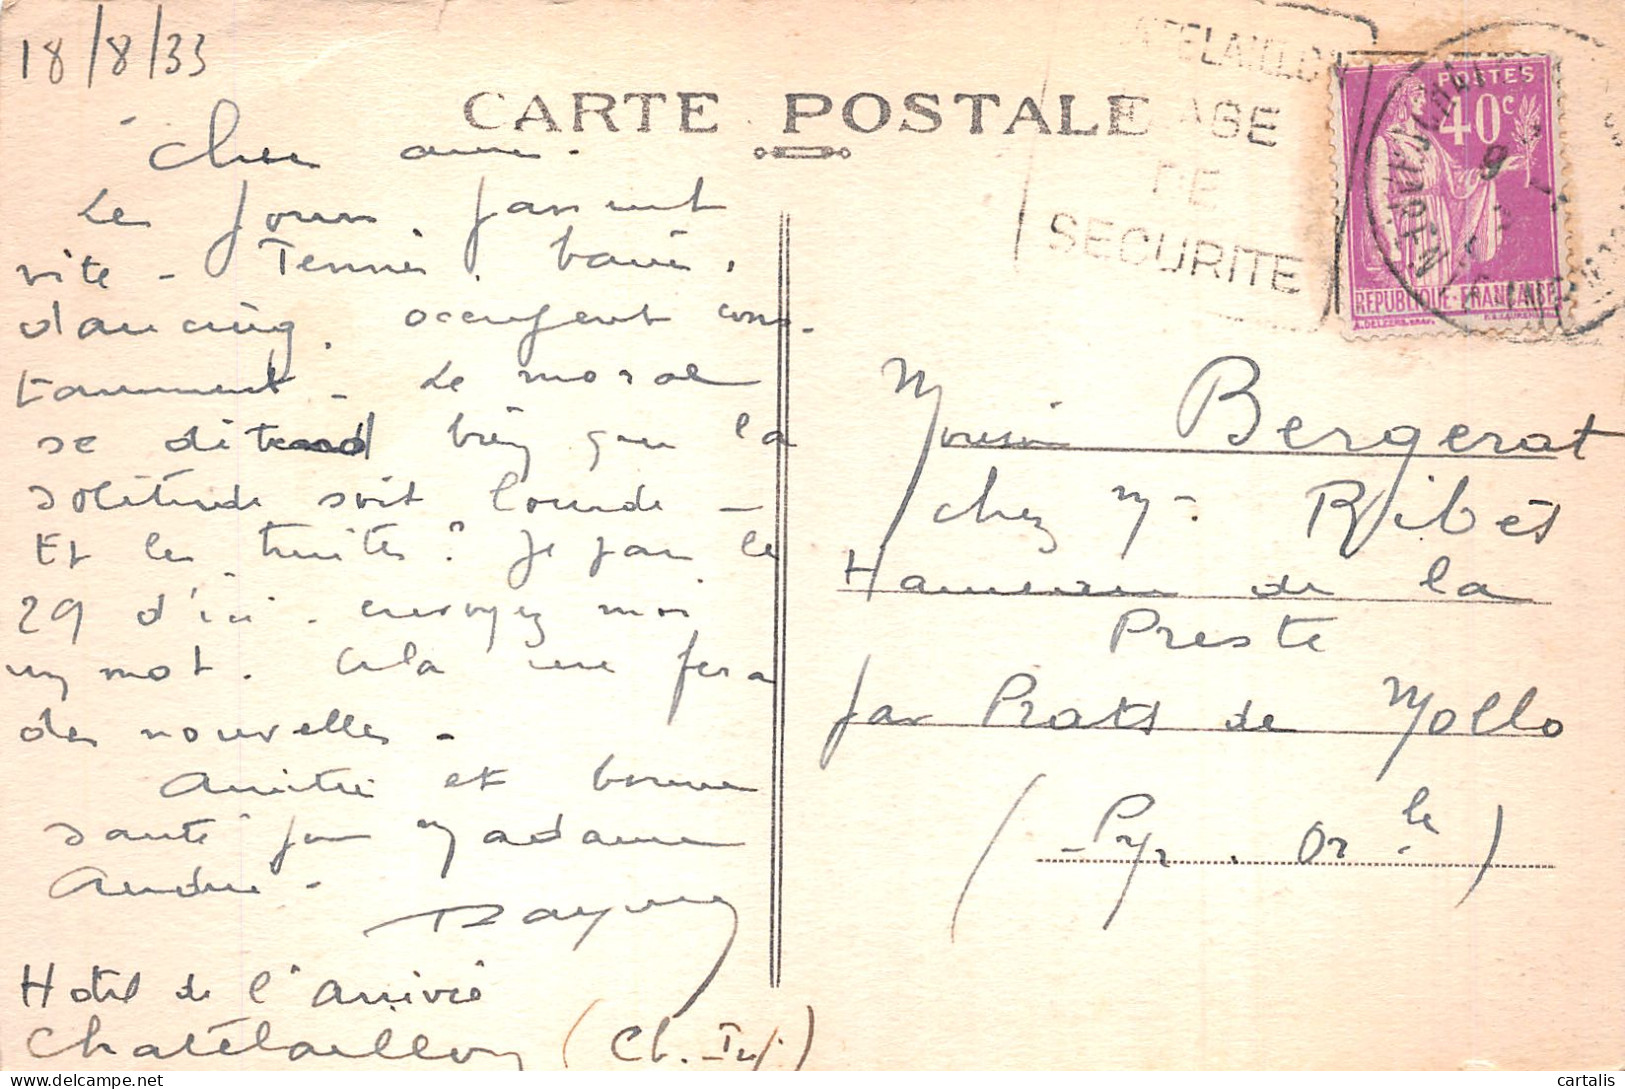 18/8/33
CARTE POSTALE
Cher ami.
Les jours passent
vite - Tennis, bains,
dancing, occupent cons-
tamment - Le moral
se détend bien que la
solitude soit lourde -
Et les truites? Je pars le
29 d'ici. envoyez moi
un mot. Cela me fera
des nouvelles -
Amitiés et bonne
santé pour Madame
André -
Raymond
Hotel de l'arrivée
Chatelaillon (Ch. Inf.)
PLAGE
DE
SECURITE
POSTES
40c
REPUBLIQUE FRANCAISE
Monsieur Bergerat
chez Mr Ribès
Hameau de la
Preste
par Prats de Mollo
(Pyr. Or.les)
cartalis